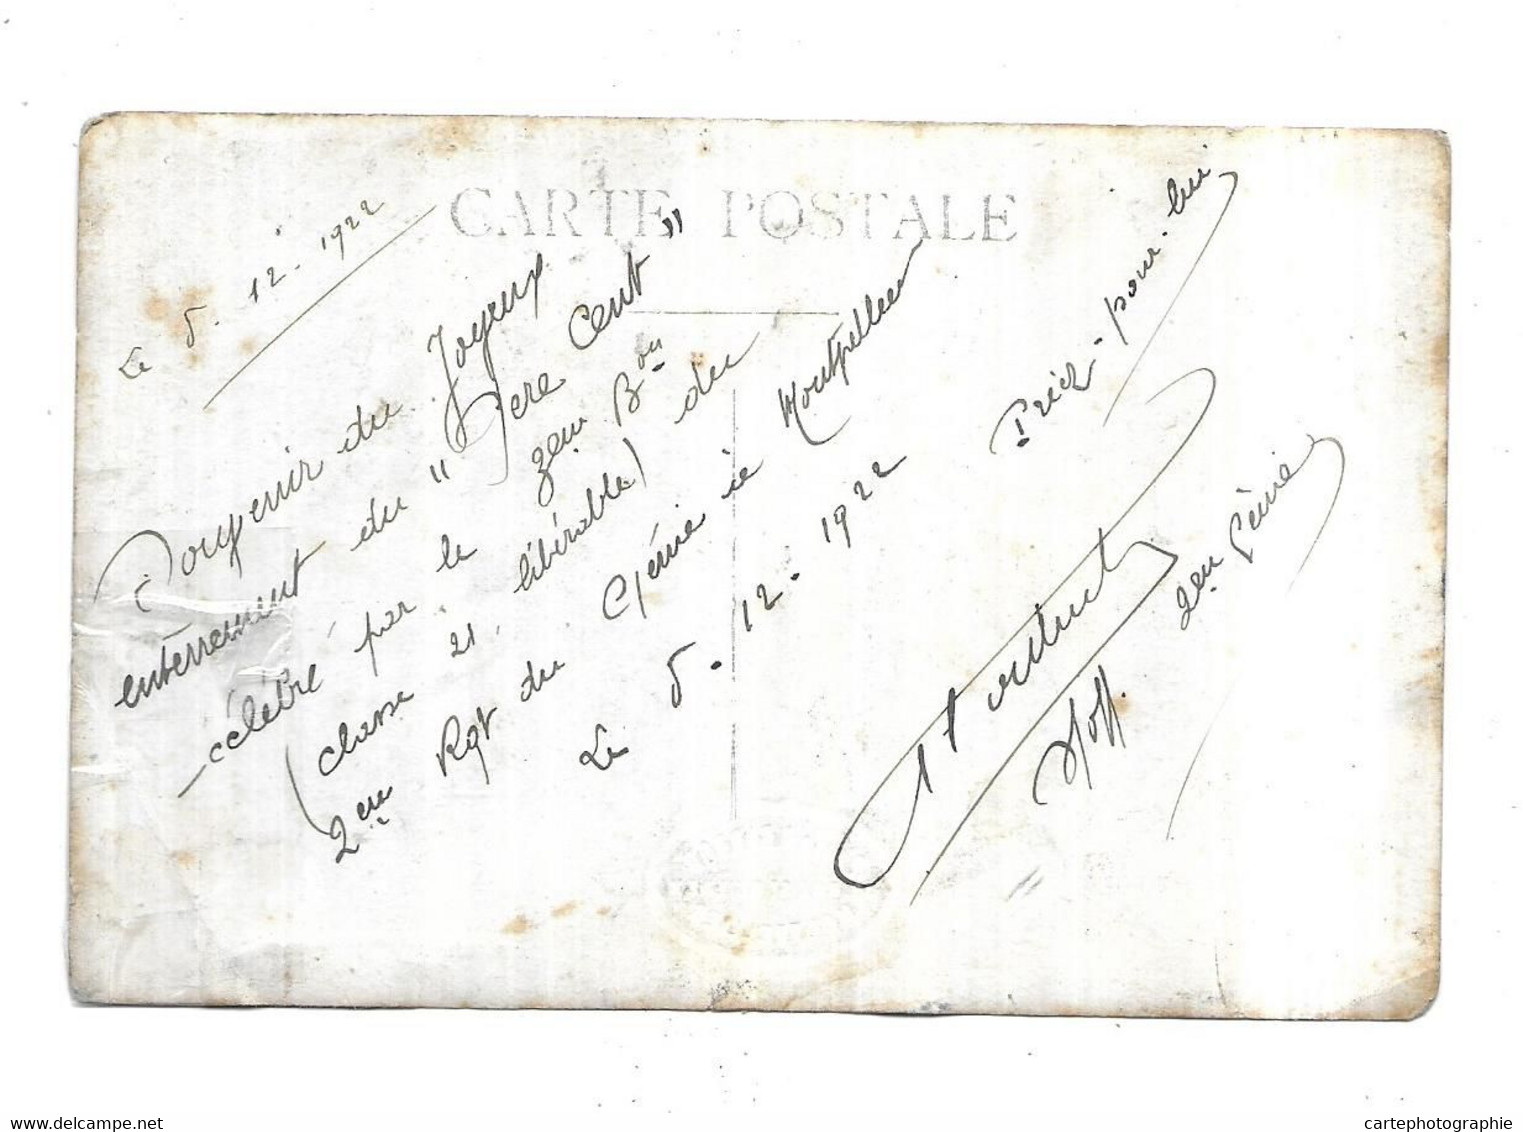 CARTE POSTALE
Le 5. 12. 1922
Souvenir du Joyeux
enterrement du "Père Cent"
célébré par le 2em Bon
(classe 21, libérable) du
2em Rgt du Génie à Montpellier
Le 5. 12. 1922
Priez-pour-lui
2em Génie
www.delcampe.net
cartephotographie